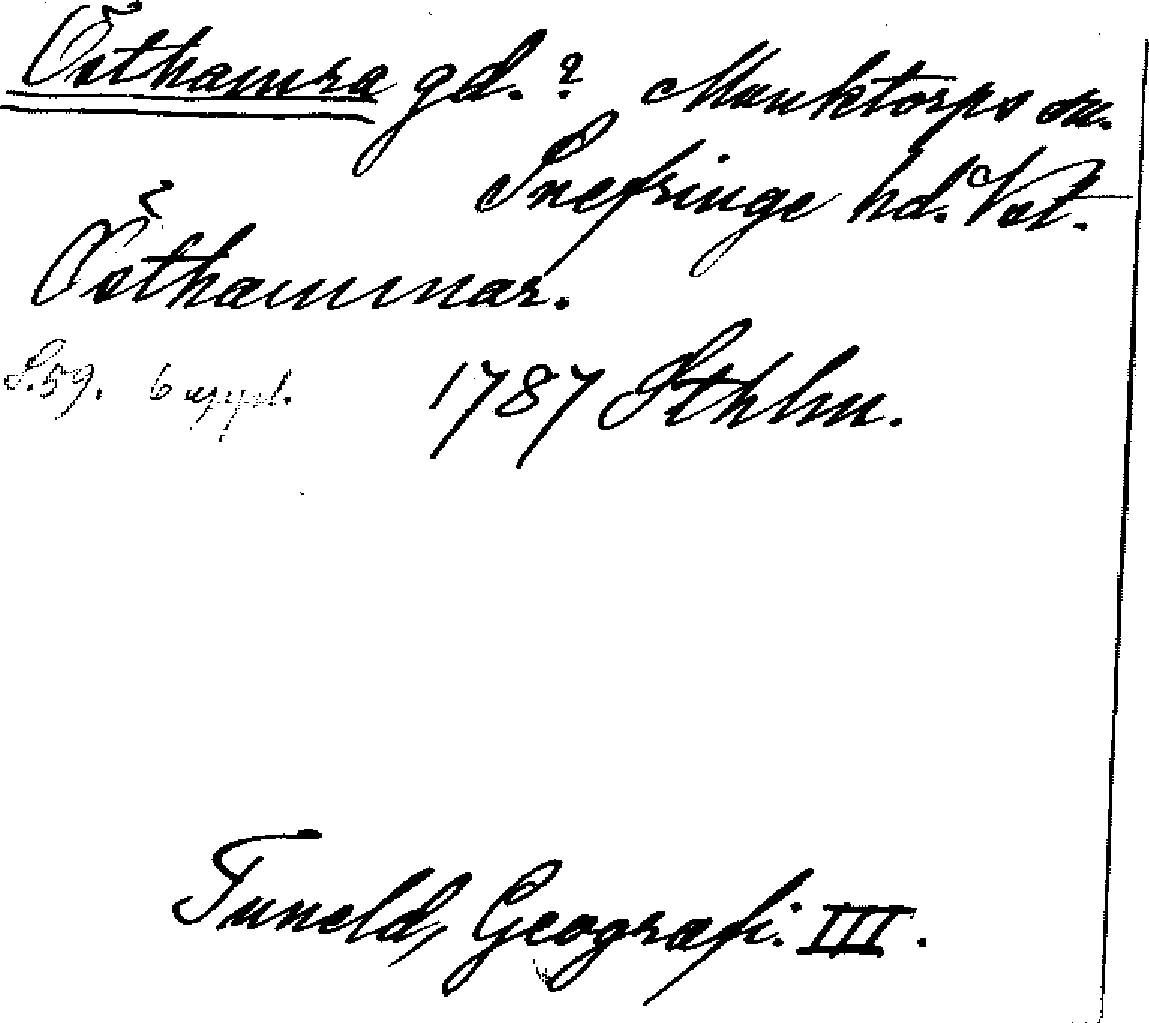 Östhamra gd.? Munktorps sn.
Snefringe hd. Vstm.
Östhammar.
S. 59. 6 uppl. 1787 Sthlm.
Tuneld, Geografi. III.